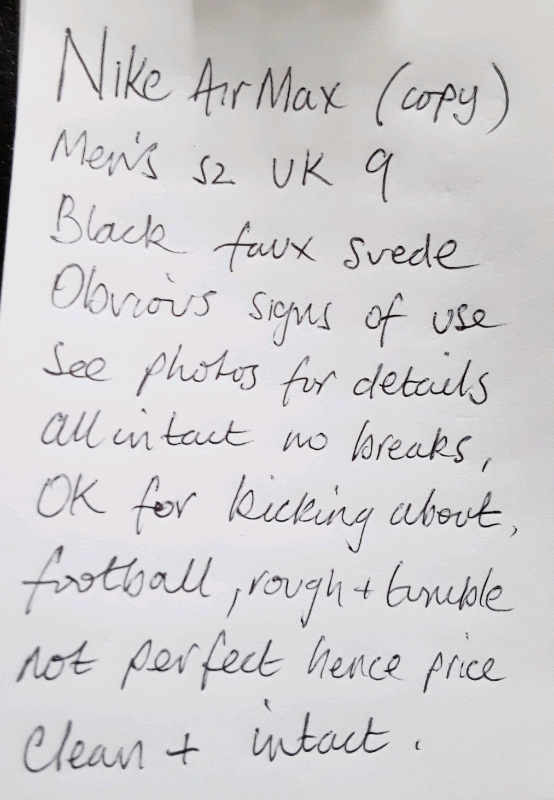 Nike Air Max (copy)
Men's sz UK 9
Black faux suede
Obvious signs of use
See photos for details
all intact no breaks,
OK for kicking about,
football, rough + tumble
not perfect hence price
Clean + intact.